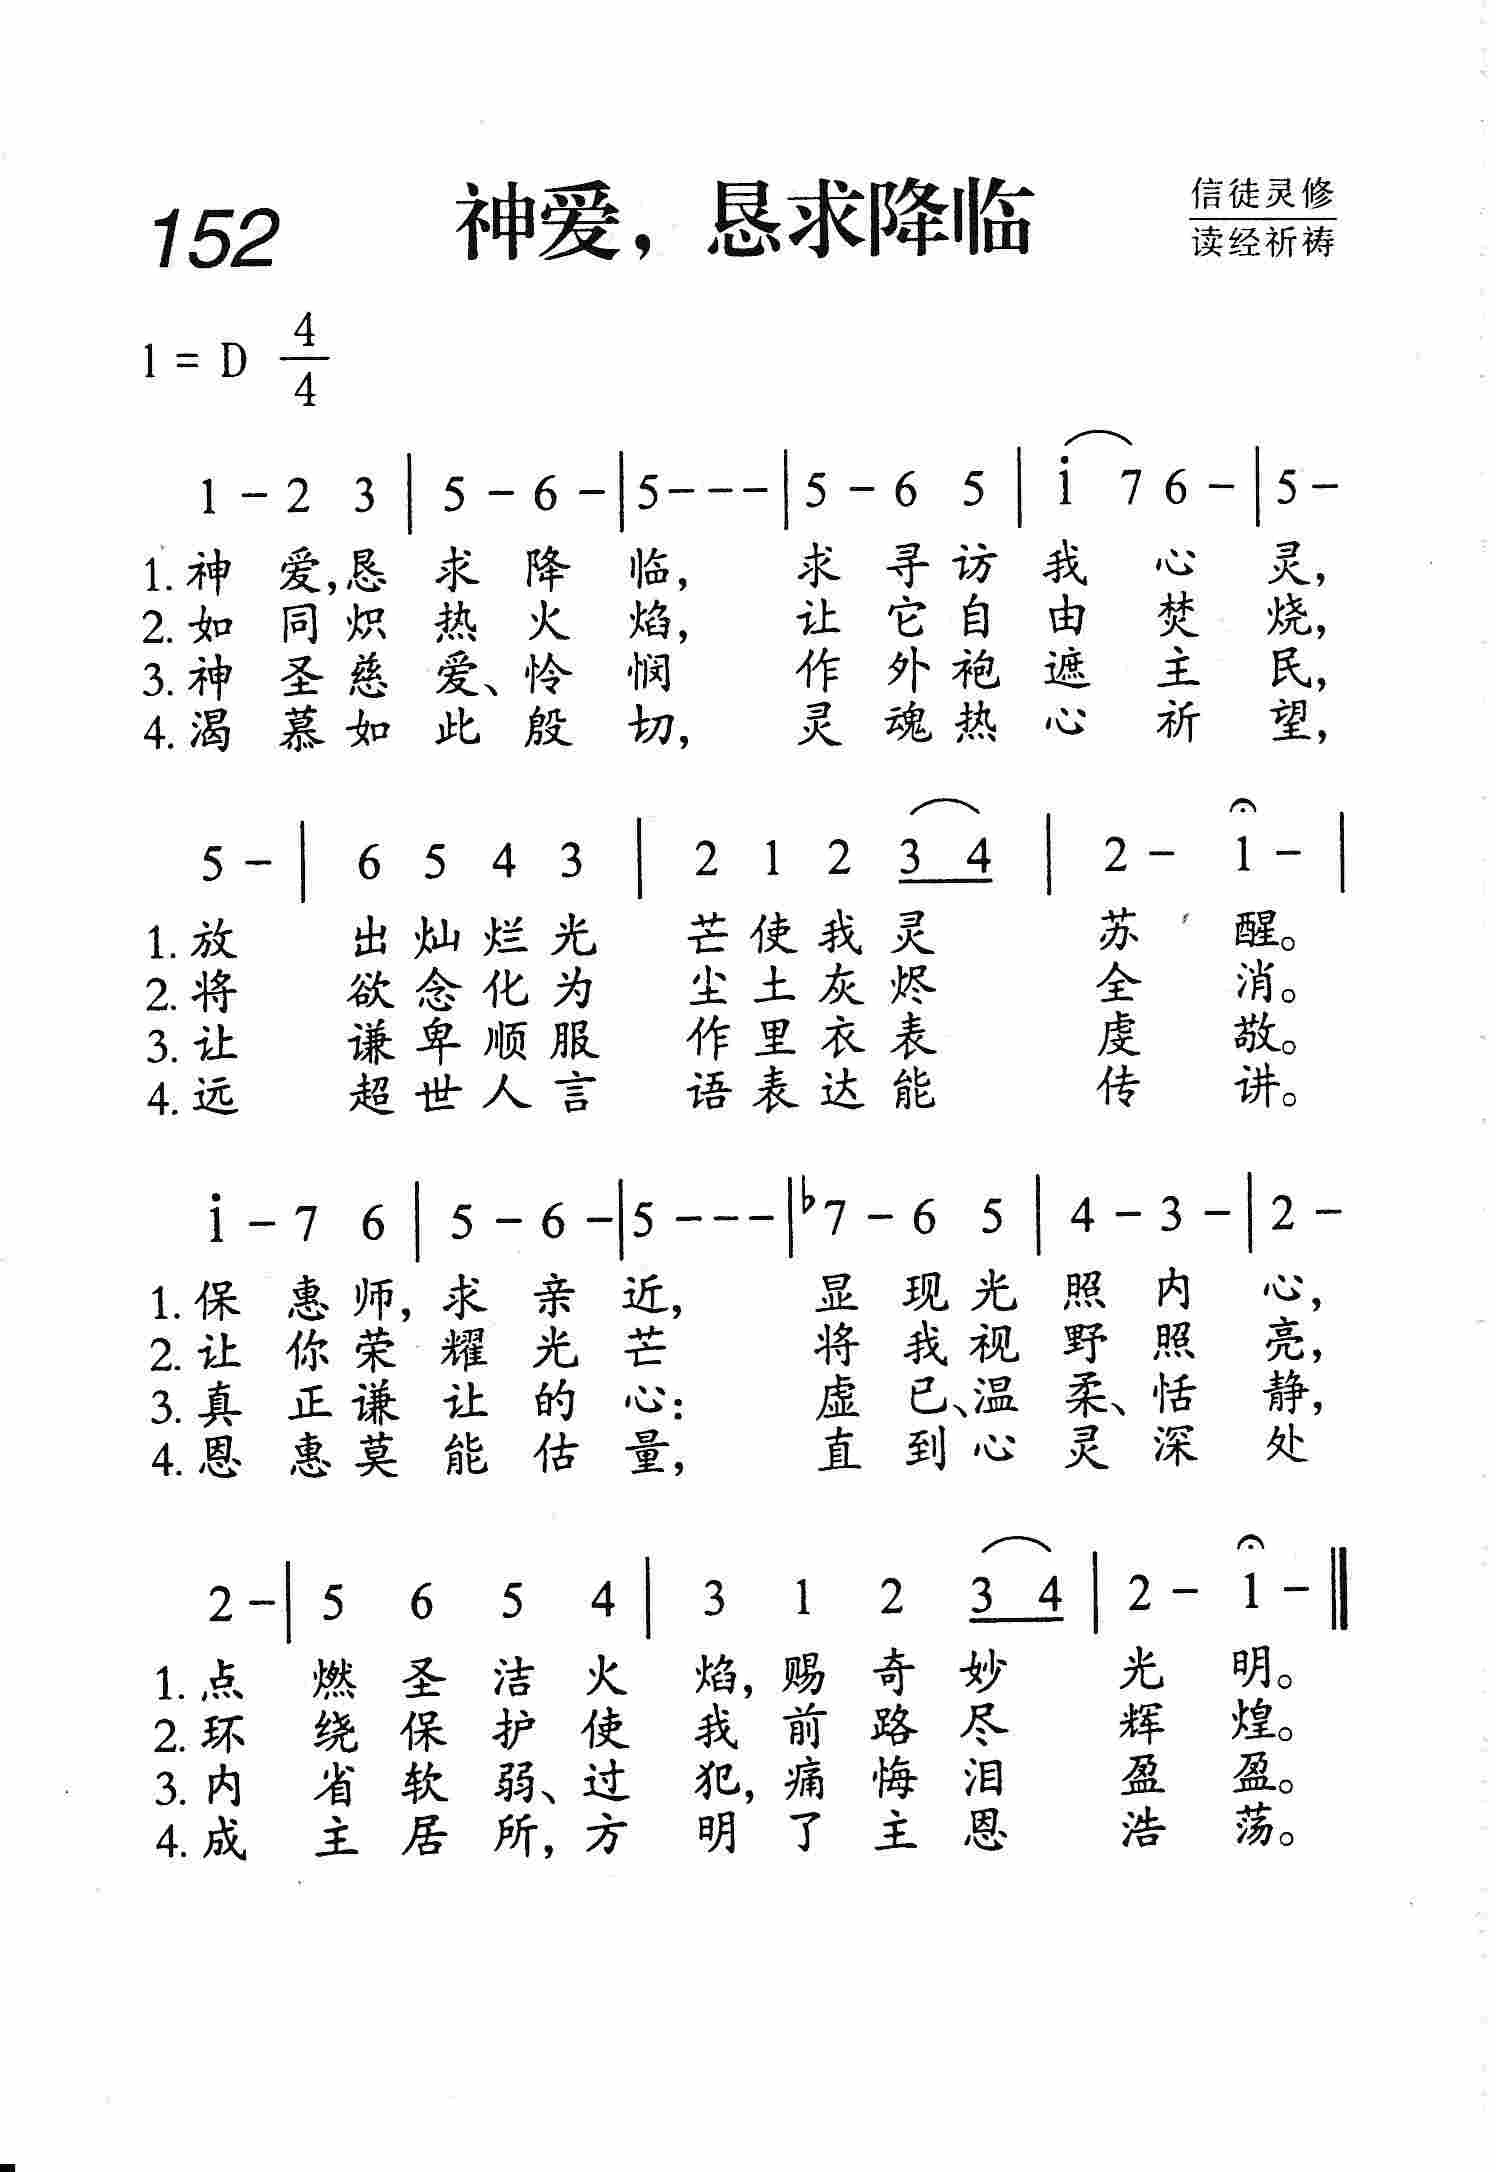 152
神爱，恳求降临
信徒灵修
读经祈祷
1 = D 4/4
1 - 2 3 | 5 - 6 - | 5 - - - | 5 - 6 5 | i 7 6 - | 5 -
1. 神爱，恳求降临，求寻访我心灵，
2. 如同炽热火焰，让它自由焚烧，
3. 神圣慈爱、怜悯作外袍遮主民，
4. 渴慕如此殷切，灵魂热心祈望，
5 - | 6 5 4 3 | 2 1 2 3 4 | 2 - 1 - |
1. 放出灿烂光芒使我灵苏醒。
2. 将欲念化为尘土灰烬全消。
3. 让谦卑顺服作里衣表虔敬。
4. 远超世人言语表达能传讲。
i - 7 6 | 5 - 6 - | 5 - - - | ♭7 - 6 5 | 4 - 3 - | 2 -
1. 保惠师，求亲近，显现光照内心，
2. 让你荣耀光芒将我视野照亮，
3. 真正谦让的心：虚已、温柔、恬静，
4. 恩惠莫能估量，直到心灵深处
2 - | 5 6 5 4 | 3 1 2 3 4 | 2 - 1 - ‖
1. 点燃圣洁火焰，赐奇妙光明。
2. 环绕保护使我前路尽辉煌。
3. 内省软弱、过犯，痛悔泪盈盈。
4. 成主居所，方明了主恩浩荡。